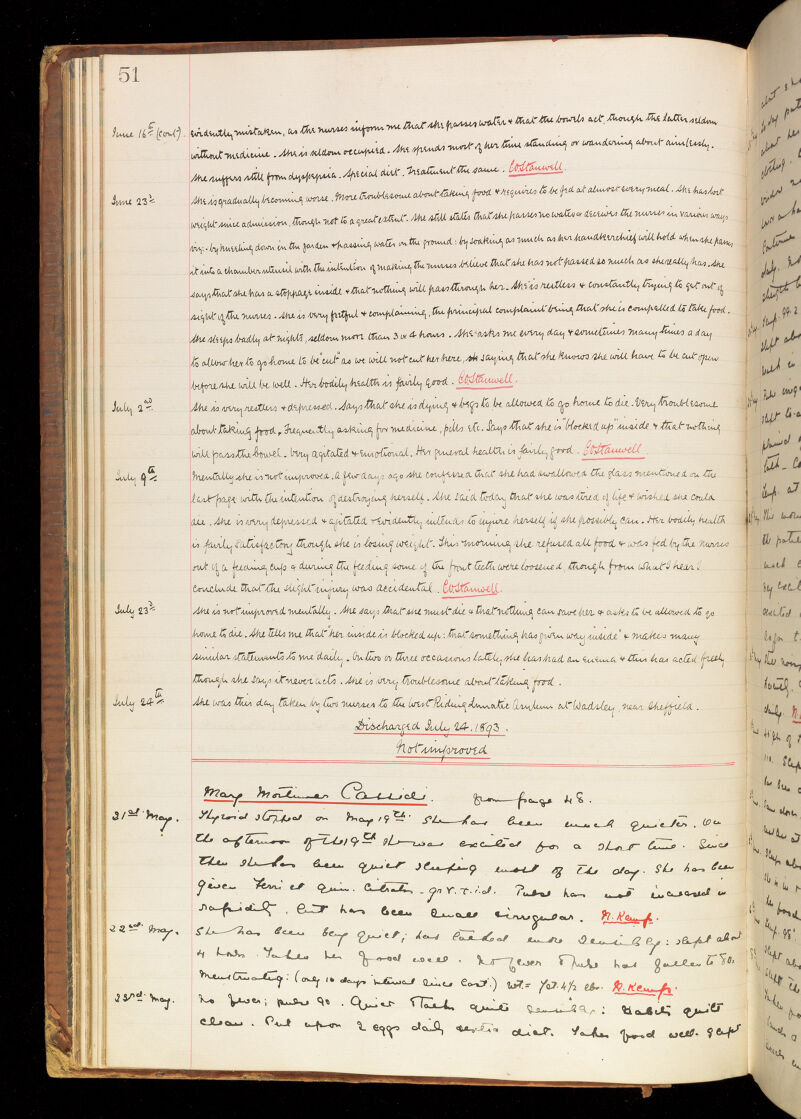 51
June 16th (cont.) evidently mistaken, as the nurses inform me that she passes water & that the bowels act, though the latter seldom
without medicine. She is seldom occupied. She spends most of her time standing or wandering about aimlessly.
She suffers still from dyspepsia. Special diet. Treatment the same. CoStanwell.
June 23rd She is gradually becoming worse. More troublesome about taking food & requires to be fed at almost every meal. She has lost
weight since admission, though not to a great extent. She still states that she passes no water & deceives the nurses in various ways
viz:- by kneeling down in the garden & passing water on the ground: by soaking as much as her handkerchief will hold when she passes
it into a chamber utensil with the intention of making the nurses believe that she has not passed so much as she really has. She
says that she has a stoppage inside & that nothing will pass through her. She is restless & constantly trying to get out of
sight of the nurses. She is very fretful & complaining, the principal complaint being that she is compelled to take food.
She sleeps badly at nights, seldom more than 3 or 4 hours. She asks me every day & sometimes many times a day
to allow her to go home to be "cut" as we will not cut her here, saying that she knows she will have to be cut open
before she will be well. Her bodily health is fairly good. CoStanwell.
July 2nd She is very restless & depressed. Says that she is dying & begs to be allowed to go home to die. Very troublesome
about taking food. Frequently asking for medicine, pills etc. Says that she is "blocked up" inside & that nothing
will pass the bowel. Very agitated & emotional. Her general health is fairly good. CoStanwell
July 9th Mentally she is not improved. A few days ago she confessed that she had swallowed the glass mentioned on the
last page with the intention of destroying herself. She said today that she was tired of life & wished she could
die. She is very depressed & agitated & evidently intends to injure herself if she possibly can. Her bodily health
is fairly satisfactory though she is losing weight. This morning she refused all food & was fed by the nurses
out of a feeding cup & during the feeding some of the front teeth were loosened, though from what I hear I
conclude that the slight injury was accidental. CoStanwell.
July 23rd She is not improved mentally. She says that she must die & that nothing can save her & asks to be allowed to go
home to die. She tells me that "her inside is blocked up: that something has given way inside" & makes many
similar statements to me daily. On two or three occasions lately, she has had an enema & this has acted freely
though she says it never acts. She is very troublesome about taking food.
July 24th She was this day taken by two nurses to the West Riding Lunatic Asylum at Wadsley, near Sheffield.
Discharged July 24. 1893.
Not improved
Mary Mortimer Cassidi. from page 48.
21st May. Thyroid stopped on May 19th. She has been much quieter. On
the afternoon of the 19th she was excited for a short time. Since
then she has been quiet sleeping most of the day. She has been
given Ferri et Quin. Citrates gr V. t.i.d. Pulse has not increased in
rapidity, but has been small irregular. N. Kemp.
22nd May. She has been very quiet; has talked more sensibly: slept about
4 hours. Takes her food well. No fever & pulse has fallen to 80.
Menstruating: (only 10 days interval since last.) Wt = 7st. 4½ lbs. N. Kemp.
23rd May. No fever; pulse 90. Quiet & talks quite sensibly: Habits quite
clean. Put upon 2 eggs daily extra diet. Takes food well. Slept